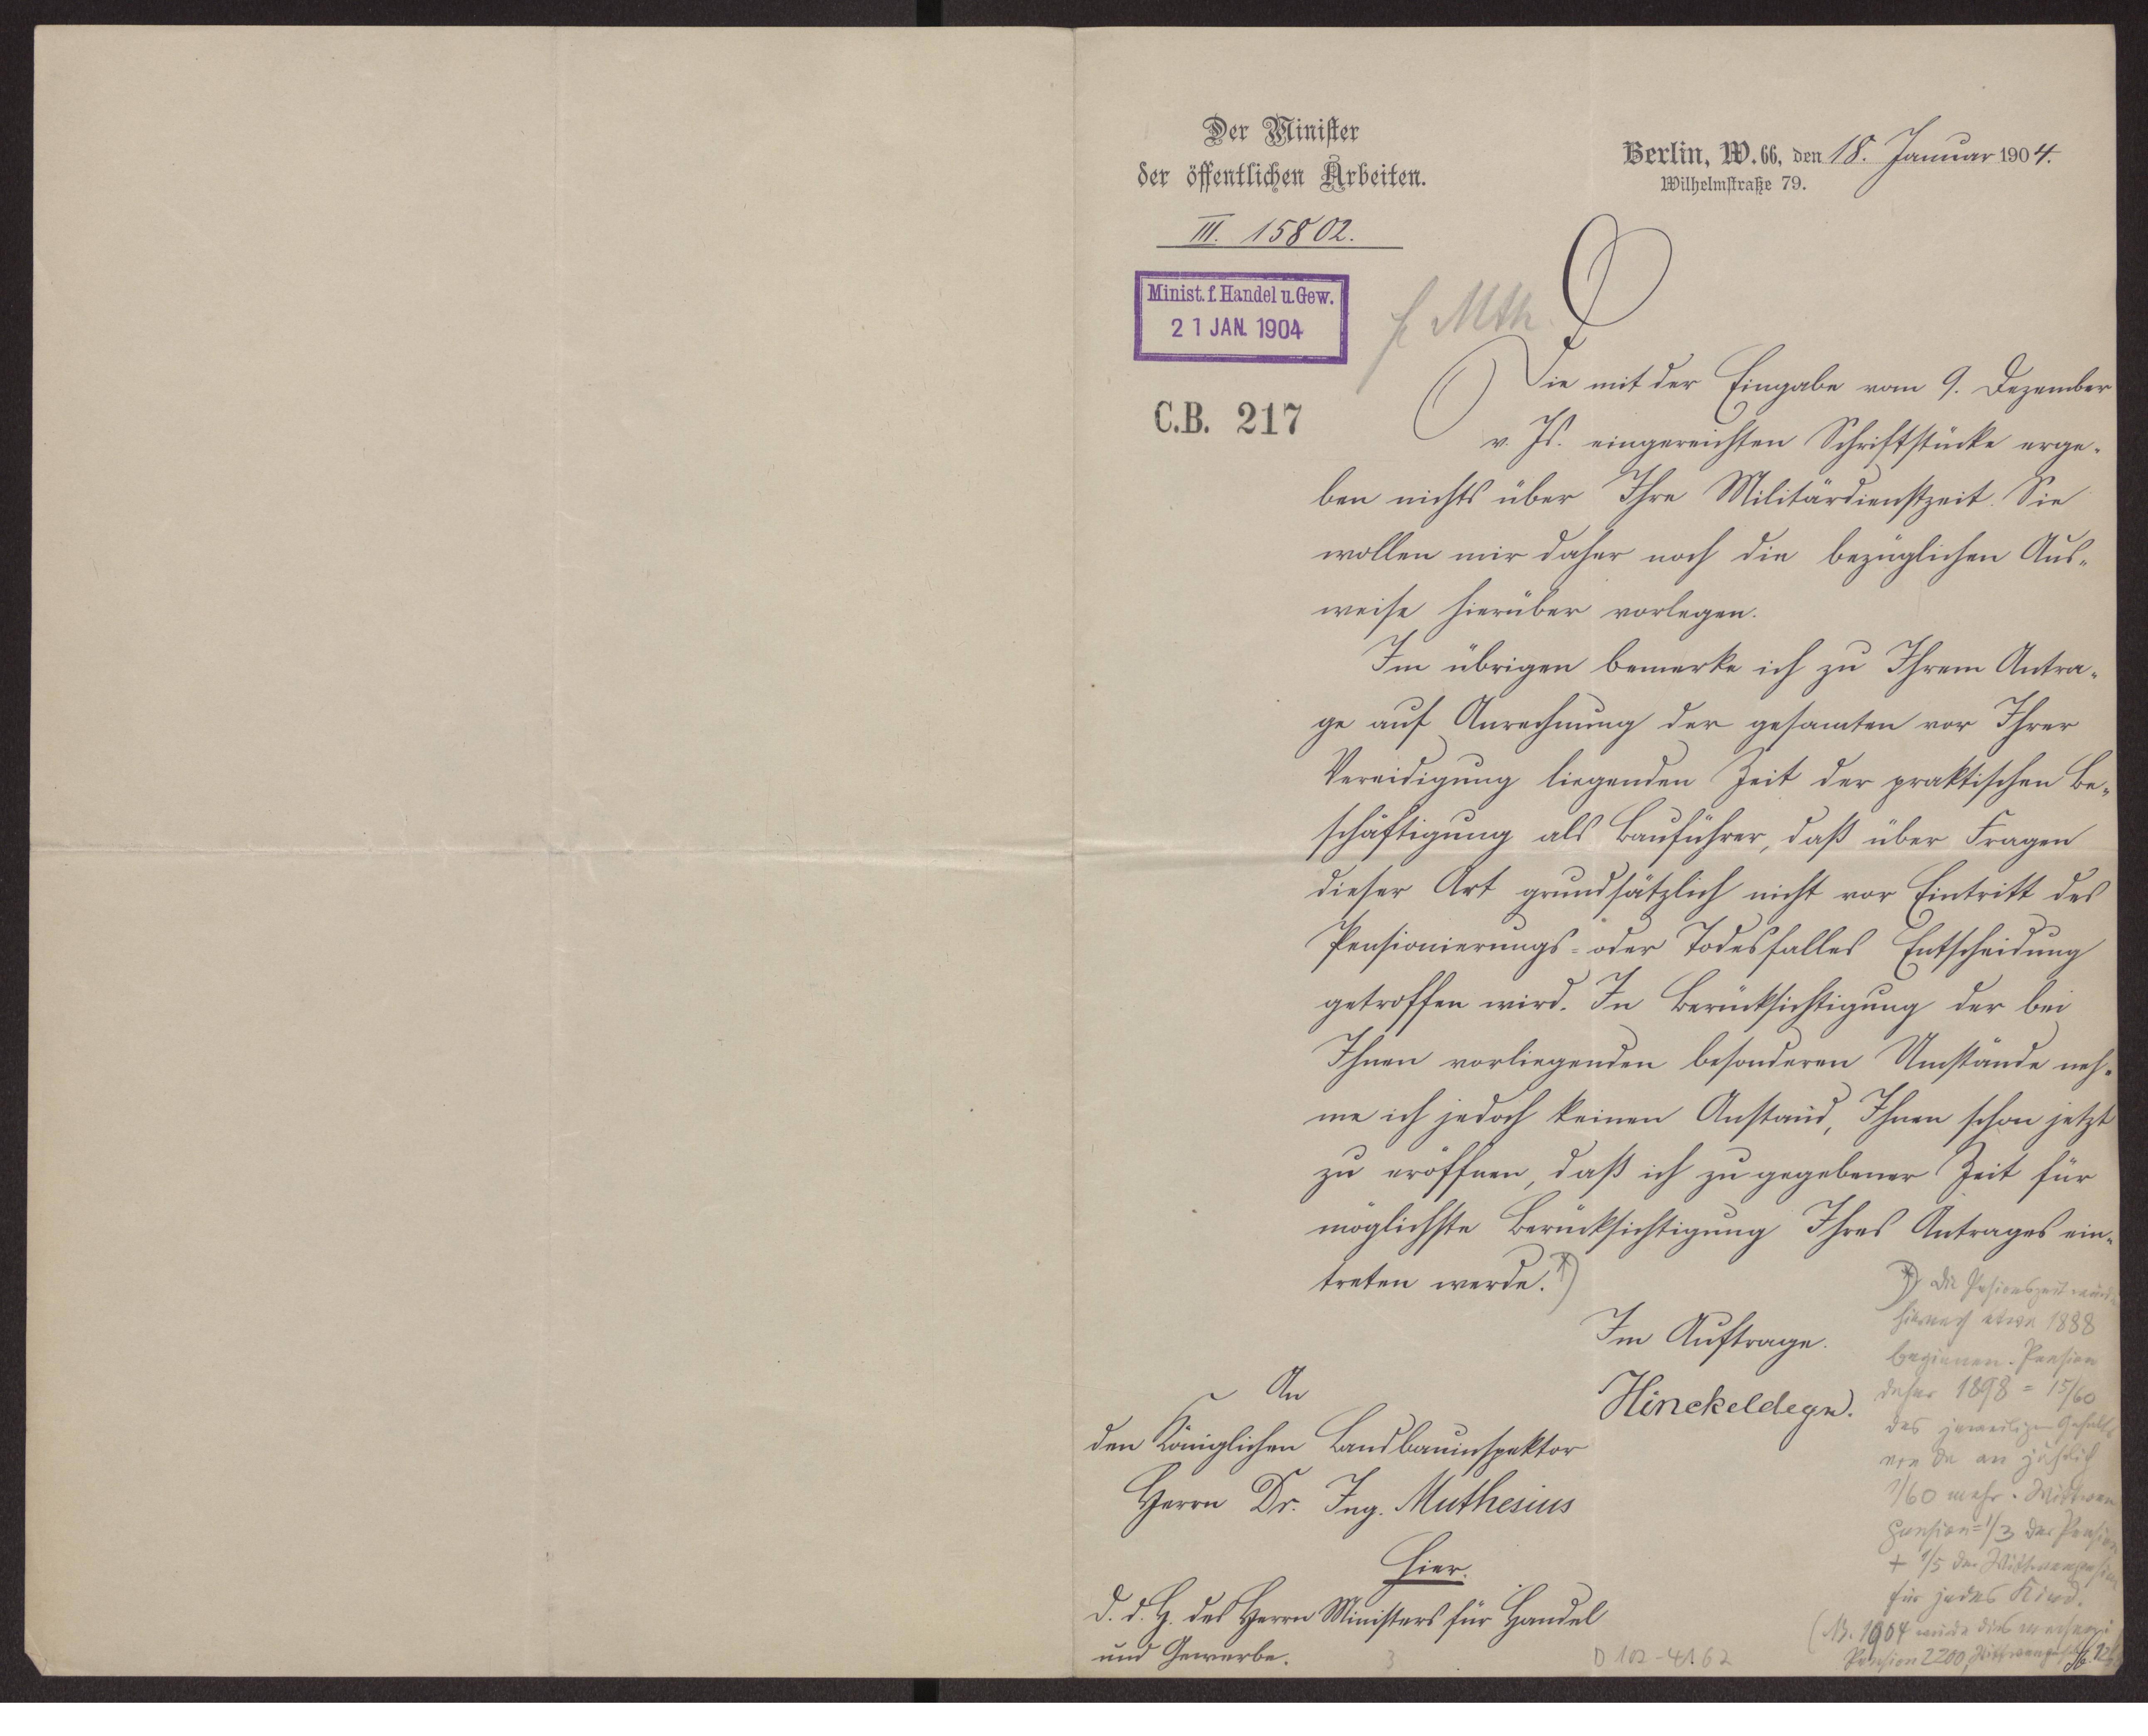 Der Minister
der öffentlichen Arbeiten.
III. 15802.
Berlin, W. 66, den 18. Januar 1904.
Wilhelmstraße 79.
Minist. f. Handel u. Gew.
21 JAN. 1904
C.B. 217
f. Mth.
Die mit der Eingabe vom 9. Dezember
v. Js. eingereichten Schriftstücke erge-
ben nichts über Ihre Militärdienstzeit. Sie
wollen mir daher noch die bezüglichen Aus-
weise hierüber vorlegen.
Im übrigen bemerke ich zu Ihrem Antra-
ge auf Anrechnung der gesamten vor Ihrer
Vereidigung liegenden Zeit der praktischen Be-
schäftigung als Bauführer, daß über Fragen
dieser Art grundsätzlich nicht vor Eintritt des
Pensionierungs- oder Todesfalles Entscheidung
getroffen wird. In Berücksichtigung der bei
Ihnen vorliegenden besonderen Umstände neh-
me ich jedoch keinen Anstand, Ihnen schon jetzt
zu eröffnen, daß ich zu gegebener Zeit für
möglichste Berücksichtigung Ihres Antrages ein-
treten werde. *)
Im Auftrage.
Hinckeldeyn.
An
den Königlichen Landbauinspektor
Herrn Dr. Ing. Muthesius
Hier.
d. d. H. des Herrn Ministers für Handel
und Gewerbe.
*) Die Pensionszeit würde
hiernach etwa 1888
beginnen. Pension
daher 1898 = 15/60
des jeweiligen Gehalts
von da an jährlich
1/60 mehr. Wittwen
pension = 1/3 der Pension
+ 1/5 der Wittwenpension
für jedes Kind.
(N. 1904 würde dies
Pension 2200,
3
D 102-4162